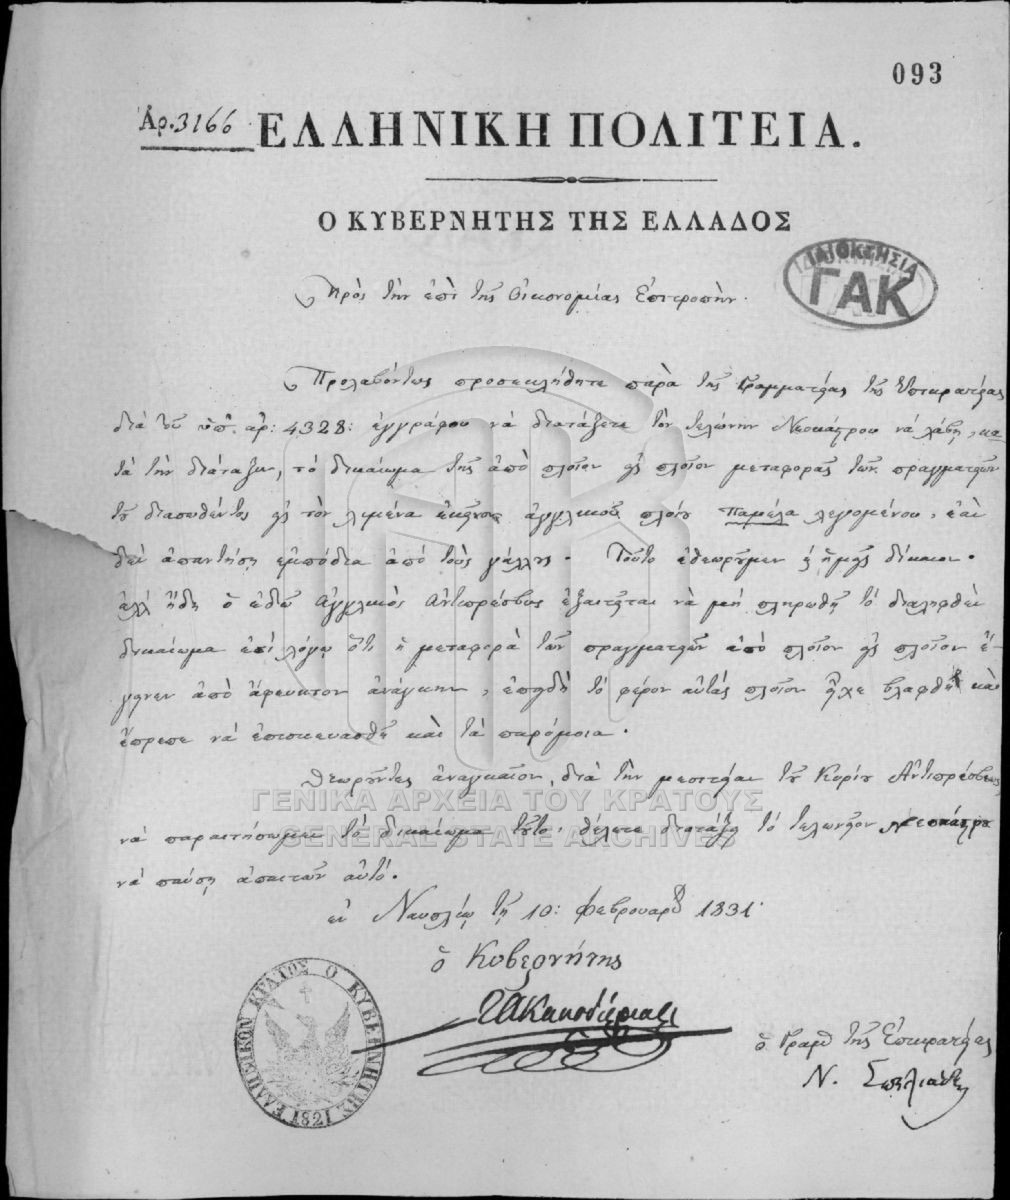 093
Ἀρ. 3166 ΕΛΛΗΝΙΚΗ ΠΟΛΙΤΕΙΑ.
Ο ΚΥΒΕΡΝΗΤΗΣ ΤΗΣ ΕΛΛΑΔΟΣ
ΙΔΙΟΚΤΗΣΙΑ
ΓΑΚ
Πρὸς τὴν ἐπὶ τῆς Οἰκονομίας Ἐπιτροπήν.
Προλαβόντως προσεκλήθητε παρὰ τῆς Γραμματείας τῆς Ἐπικρατείας
διὰ τοῦ ὑπ' ἀρ: 4328: ἐγγράφου νὰ διατάξετε τὸν τελώνην Νεοκάστρου νὰ λάβῃ, κα
τὰ τὴν διάταξιν, τὸ δικαίωμα τῆς ἀπὸ πλοῖον εἰς πλοῖον μεταφορᾶς τῶν πραγματειῶν
τοῦ διασωθέντος εἰς τὸν λιμένα ἐκεῖνον ἀγγλικοῦ πλοίου Παμέλα λεγομένου, ἐὰν
δὲν ἀπαντήσῃ ἐμπόδια ἀπὸ τοὺς γάλλους. Τοῦτο ἐθεωροῦμεν ἡμεῖς δίκαιον.
ἀλλ' ἤδη ὁ ἐδῶ Ἀγγλικὸς Ἀντιπρέσβυς ἐξαιτεῖται νὰ μὴ πληρωθῇ τὸ διαληφθὲν
δικαίωμα ἐπὶ λόγῳ ὅτι ἡ μεταφορὰ τῶν πραγματειῶν ἀπὸ πλοῖον εἰς πλοῖον ἔ-
γεινεν ἀπὸ ἄφευκτον ἀνάγκην, ἐπειδὴ τὸ φέρον αὐτὰς πλοῖον εἶχε βλαφθῆ καὶ
ἔπρεπε νὰ ἐπισκευασθῇ καὶ τὰ παρόμοια.
Θεωροῦντες ἀναγκαῖον, διὰ τὴν μεσιτείαν τοῦ Κυρίου Ἀντιπρέσβεως,
νὰ παραιτήσωμεν τὸ δικαίωμα τοῦτο, θέλετε διατάξει τὸ τελωνεῖον Νεοκάστρου
νὰ παύσῃ ἀπαιτῶν αὐτό.
ΓΕΝΙΚΑ ΑΡΧΕΙΑ ΤΟΥ ΚΡΑΤΟΥΣ
GENERAL STATE ARCHIVES
ἐν Ναυπλίῳ τῇ 10: Φεβρουαρίου 1831.
ὁ Κυβερνήτης
ΙΑ Καποδίστριας
ὁ Γραμ. τῆς Ἐπικρατείας
Ν. Σπηλιάδης
ΕΛΛΗΝΙΚΟΝ ΚΡΑΤΟΣ Ο ΚΥΒΕΡΝΗΤΗΣ
1821